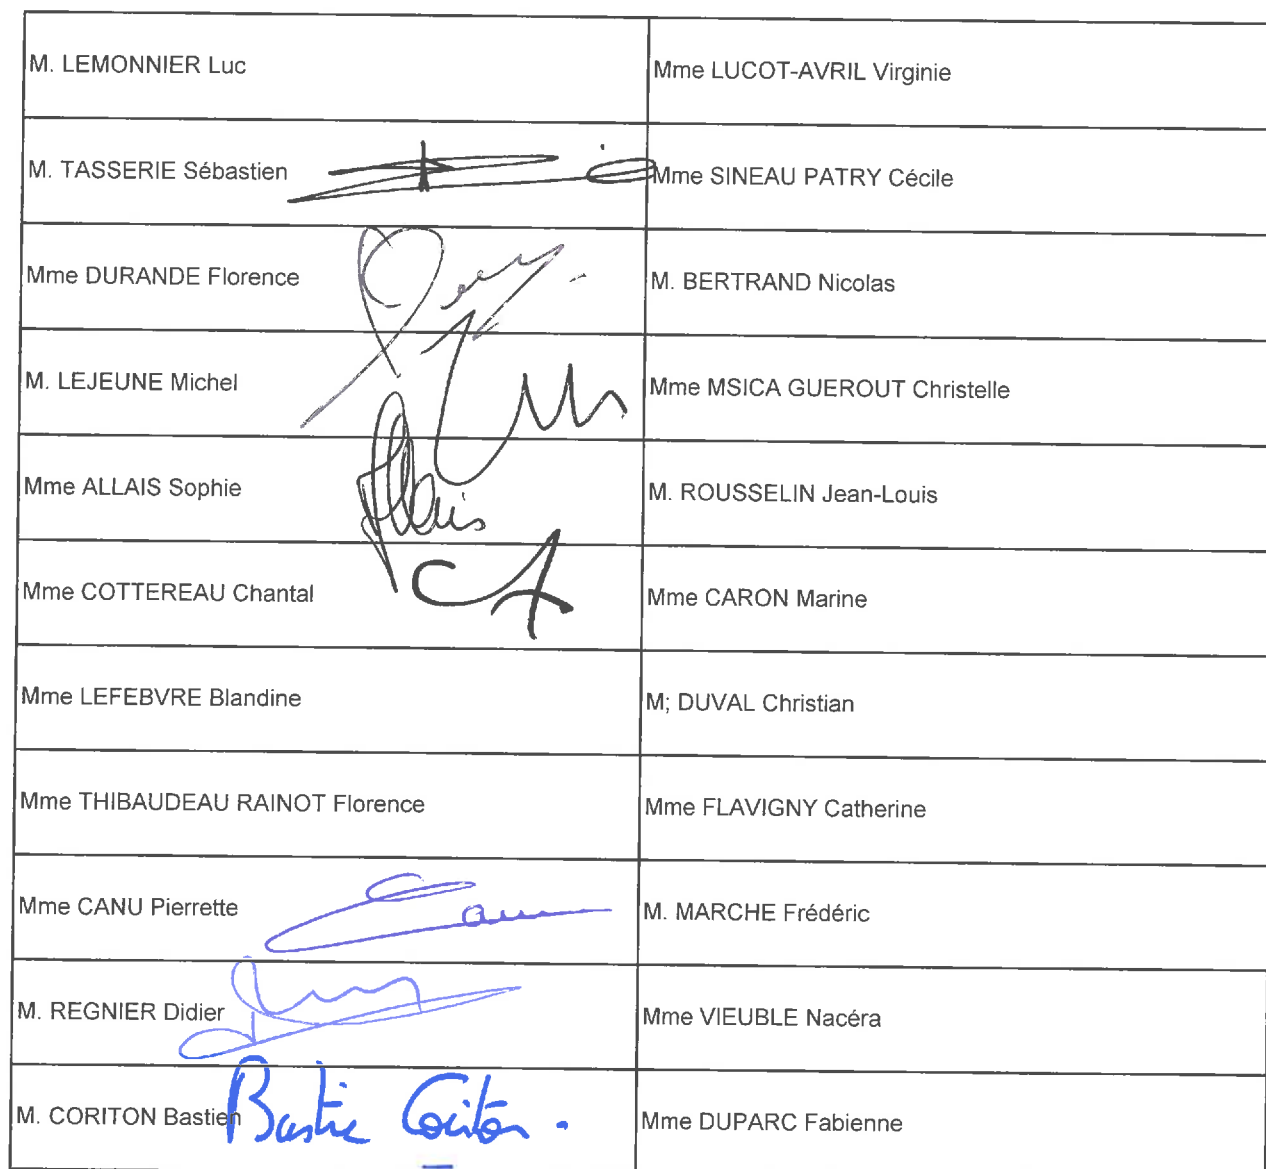 M. LEMONNIER Luc
Mme LUCOT-AVRIL Virginie
M. TASSERIE Sébastien
Mme SINEAU PATRY Cécile
Mme DURANDE Florence
M. BERTRAND Nicolas
M. LEJEUNE Michel
Mme MSICA GUEROUT Christelle
Mme ALLAIS Sophie
Allais
M. ROUSSELIN Jean-Louis
Mme COTTEREAU Chantal
Mme CARON Marine
Mme LEFEBVRE Blandine
M; DUVAL Christian
Mme THIBAUDEAU RAINOT Florence
Mme FLAVIGNY Catherine
Mme CANU Pierrette
M. MARCHE Frédéric
M. REGNIER Didier
Mme VIEUBLE Nacéra
M. CORITON Bastien
Bastien Coriton.
Mme DUPARC Fabienne